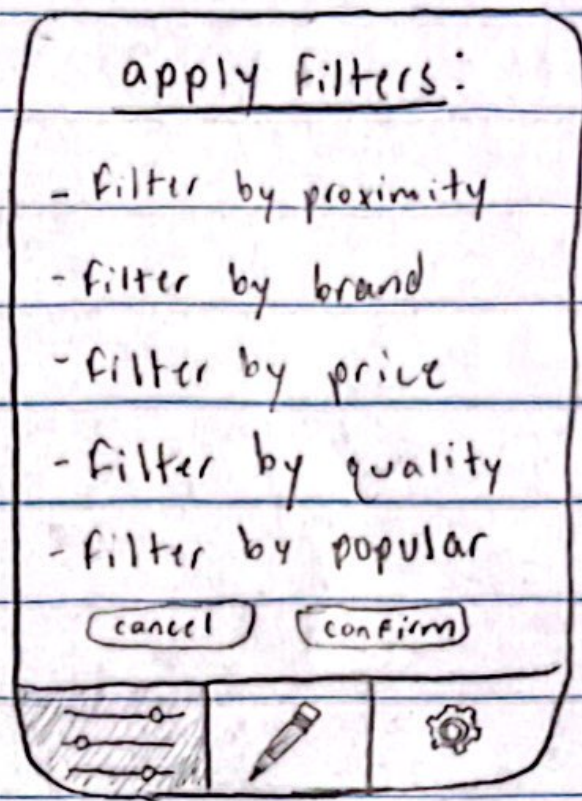 apply filters:
- filter by proximity
- filter by brand
- filter by price
- filter by quality
- filter by popular
cancel confirm